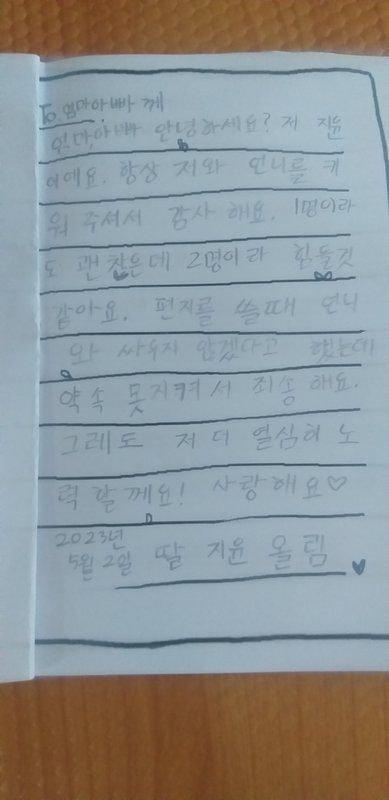 To. 엄마,아빠 께
엄마,아빠 안녕하세요? 저 지윤
이예요. 항상 저와 언니를 키
워 주셔서 감사 해요. 1명이라
도 괜찮은데 2명이라 힘들것
같아요. 편지를 쓸때 언니
와 싸우지 않겠다고 했는데
약속 못지켜서 죄송 해요.
그레도 저 더 열심히 노
력 할께요! 사랑해요♡
2023년
5월 2일 딸 지윤 올림 ♥